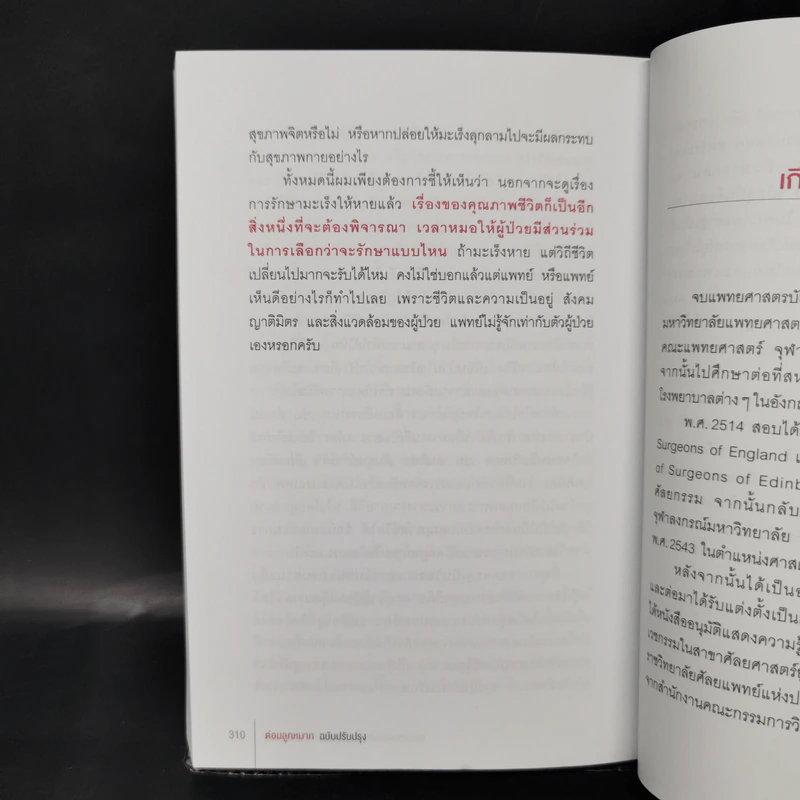 สุขภาพจิตหรือไม่ หรือหากปล่อยให้มะเร็งลุกลามไปจะมีผลกระทบ
กับสุขภาพกายอย่างไร
ทั้งหมดนี้ผมเพียงต้องการชี้ให้เห็นว่า นอกจากจะดูเรื่อง
การรักษามะเร็งให้หายแล้ว เรื่องของคุณภาพชีวิตก็เป็นอีก
สิ่งหนึ่งที่จะต้องพิจารณา เวลาหมอให้ผู้ป่วยมีส่วนร่วม
ในการเลือกว่าจะรักษาแบบไหน ถ้ามะเร็งหาย แต่วิถีชีวิต
เปลี่ยนไปมากจะรับได้ไหม คงไม่ใช่บอกแล้วแต่แพทย์ หรือแพทย์
เห็นดีอย่างไรก็ทำไปเลย เพราะชีวิตและความเป็นอยู่ สังคม
ญาติมิตร และสิ่งแวดล้อมของผู้ป่วย แพทย์ไม่รู้จักเท่ากับตัวผู้ป่วย
เองหรอกครับ
310 ต่อมลูกหมาก ฉบับปรับปรุง
เกี
จบแพทยศาสตรบั
มหาวิทยาลัยแพทยศาสตร
คณะแพทยศาสตร์ จุฬา
จากนั้นไปศึกษาต่อที่สห
โรงพยาบาลต่าง ๆ ในอังกฤ
พ.ศ. 2514 สอบได้
Surgeons of England แ
of Surgeons of Edinb
ศัลยกรรม จากนั้นกลับ
จุฬาลงกรณ์มหาวิทยาลัย
พ.ศ. 2543 ในตำแหน่งศาสต
หลังจากนั้นได้เป็นอ
และต่อมาได้รับแต่งตั้งเป็น
ได้หนังสืออนุมัติแสดงความรู้
เวชกรรมในสาขาศัลยศาสตร์ยู
ราชวิทยาลัยศัลยแพทย์แห่งป
จากสำนักงานคณะกรรมการวิ